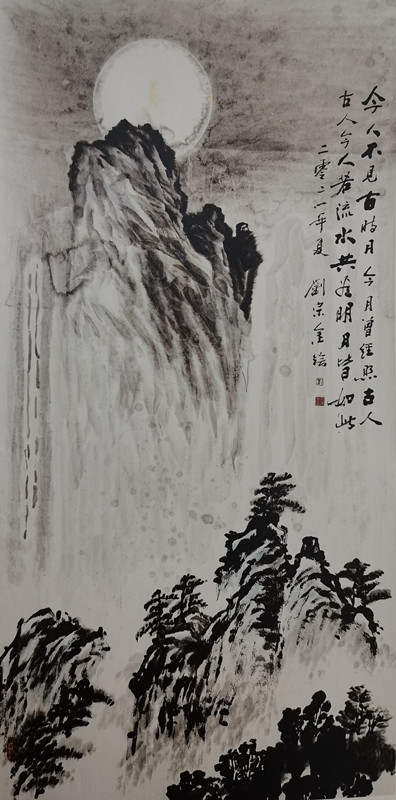 今人不見古時月今月曾經照古人
古人今人若流水共看明月皆如此
二零二一年夏
劉宗 繪